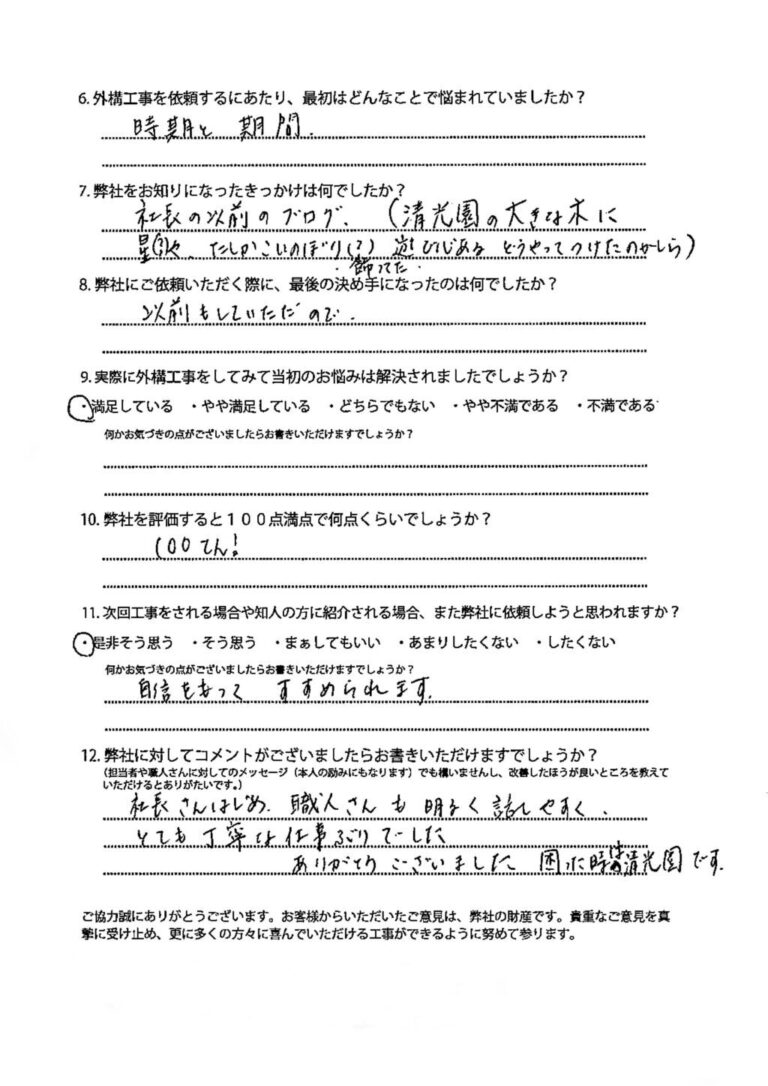 6. 外構工事を依頼するにあたり、最初はどんなことで悩まれていましたか？
時期と 期間.
7. 弊社をお知りになったきっかけは何でしたか？
社長の以前のブログ、(清光園の大きな木に
星(?)や、たしかこいのぼり(?) 遊びじある どうやってつけたのかしら)
・飾ってた・
8. 弊社にご依頼いただく際に、最後の決め手になったのは何でしたか？
以前もしていただだので、
9. 実際に外構工事をしてみて当初のお悩みは解決されましたでしょうか？
・満足している ・やや満足している ・どちらでもない ・やや不満である ・不満である
何かお気づきの点がございましたらお書きいただけますでしょうか？
10. 弊社を評価すると１００点満点で何点くらいでしょうか？
100てん!
11. 次回工事をされる場合や知人の方に紹介される場合、また弊社に依頼しようと思われますか？
・是非そう思う ・そう思う ・まぁしてもいい ・あまりしたくない ・したくない
何かお気づきの点がございましたらお書きいただけますでしょうか？
自信をもって すすめられます.
12. 弊社に対してコメントがございましたらお書きいただけますでしょうか？
（担当者や職人さんに対してのメッセージ（本人の励みにもなります）でも構いませんし、改善したほうが良いところを教えて
いただけるとありがたいです。）
社長さんはじめ、職人さんも明るく話しやすく、
とても丁寧な仕事ぶりでした
ありがとうございました 困った時は清光園です.
ご協力誠にありがとうございます。お客様からいただいたご意見は、弊社の財産です。貴重なご意見を真
摯に受け止め、更に多くの方々に喜んでいただける工事ができるように努めて参ります。